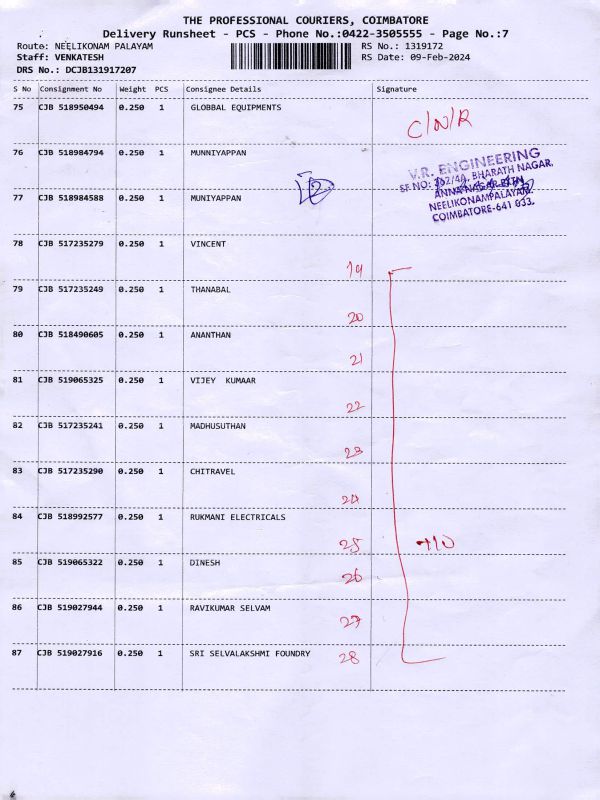 THE PROFESSIONAL COURIERS, COIMBATORE
Delivery Runsheet - PCS - Phone No.:0422-3505555 - Page No.:7
Route: NEELIKONAM PALAYAM RS No.: 1319172
Staff: VENKATESH RS Date: 09-Feb-2024
DRS No.: DCJB131917207
S No Consignment No Weight PCS Consignee Details Signature
75 CJB 518950494 0.250 1 GLOBBAL EQUIPMENTS
C/N/R
76 CJB 518984794 0.250 1 MUNNIYAPPAN
V.R. ENGINEERING
SF NO: 102/4A, BHARATH NAGAR,
77 CJB 518984588 0.250 1 MUNIYAPPAN
2
ANNA NAGAR
NEELIKONAMPALAYAM,
COIMBATORE-641 033.
78 CJB 517235279 0.250 1 VINCENT
19
79 CJB 517235249 0.250 1 THANABAL
20
80 CJB 518490605 0.250 1 ANANTHAN
21
81 CJB 519065325 0.250 1 VIJEY KUMAAR
22
82 CJB 517235241 0.250 1 MADHUSUTHAN
23
83 CJB 517235290 0.250 1 CHITRAVEL
24
84 CJB 518992577 0.250 1 RUKMANI ELECTRICALS
25
85 CJB 519065322 0.250 1 DINESH
26
86 CJB 519027944 0.250 1 RAVIKUMAR SELVAM
27
87 CJB 519027916 0.250 1 SRI SELVALAKSHMI FOUNDRY
28